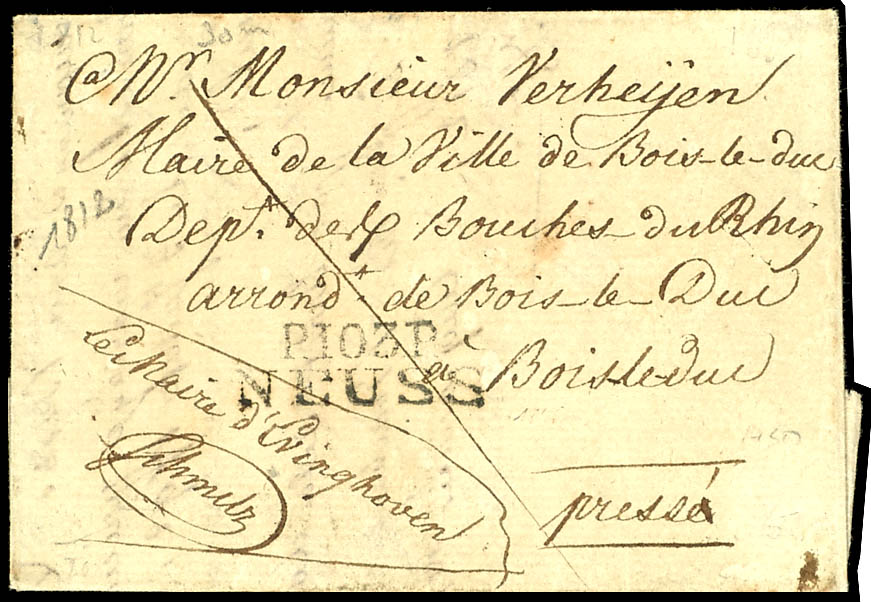 1812
a Mr Monsieur Verheÿen
Maire de la Ville de Bois-le-duc
Dept. des Bouches-du Rhin
1812
arrondt. de Bois-le-Duc
P.103.P.
NEUSS
a Bois-le-duc
Le Maire d'Evinghoven
Schmitz
pressé